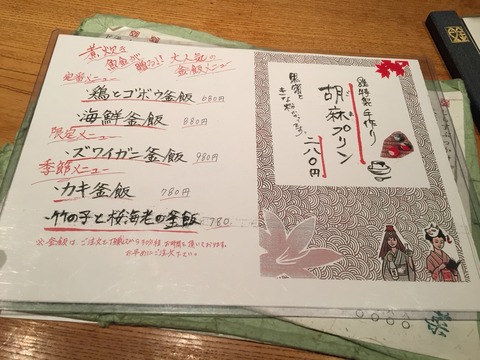 煮炊き
魚金が
贈る!!
大人気の
釜飯メニュー
定番メニュー
・鶏とゴボウ釜飯 680円
・海鮮釜飯 880円
限定メニュー
・ズワイガニ釜飯 980円
季節メニュー
・カキ釜飯 780円
・竹の子と桜海老の釜飯 780
※釜飯は、ご注文を頂戴してから
お時間を頂いております。
お早めにご注文下さい。
特製手作り
胡麻プリン
黒蜜と
きな粉
二八〇円